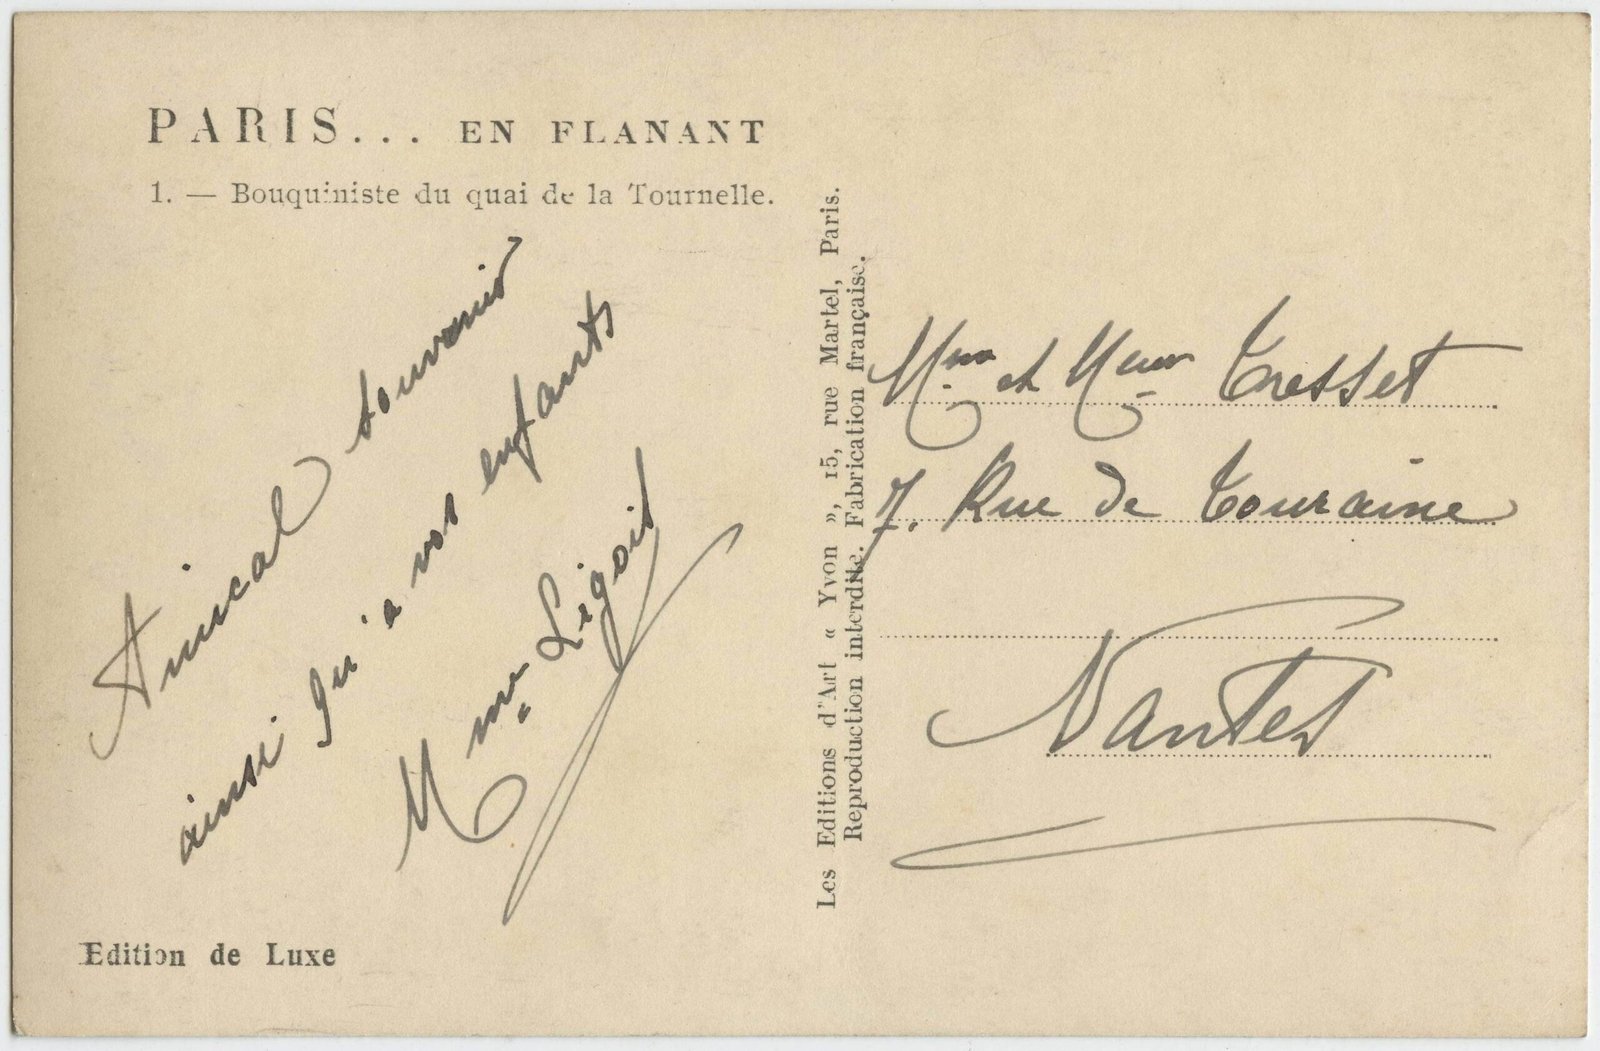 PARIS... EN FLANANT
1. — Bouquiniste du quai de la Tournelle.
Amical souvenir
ainsi qu'a vos enfants
Mme Ligoit
Edition de Luxe
Les Editions d'Art « Yvon », 15, rue Martel, Paris.
Reproduction interdite. Fabrication française.
Mme et Meur Tresset
7. Rue de Touraine
Nantes